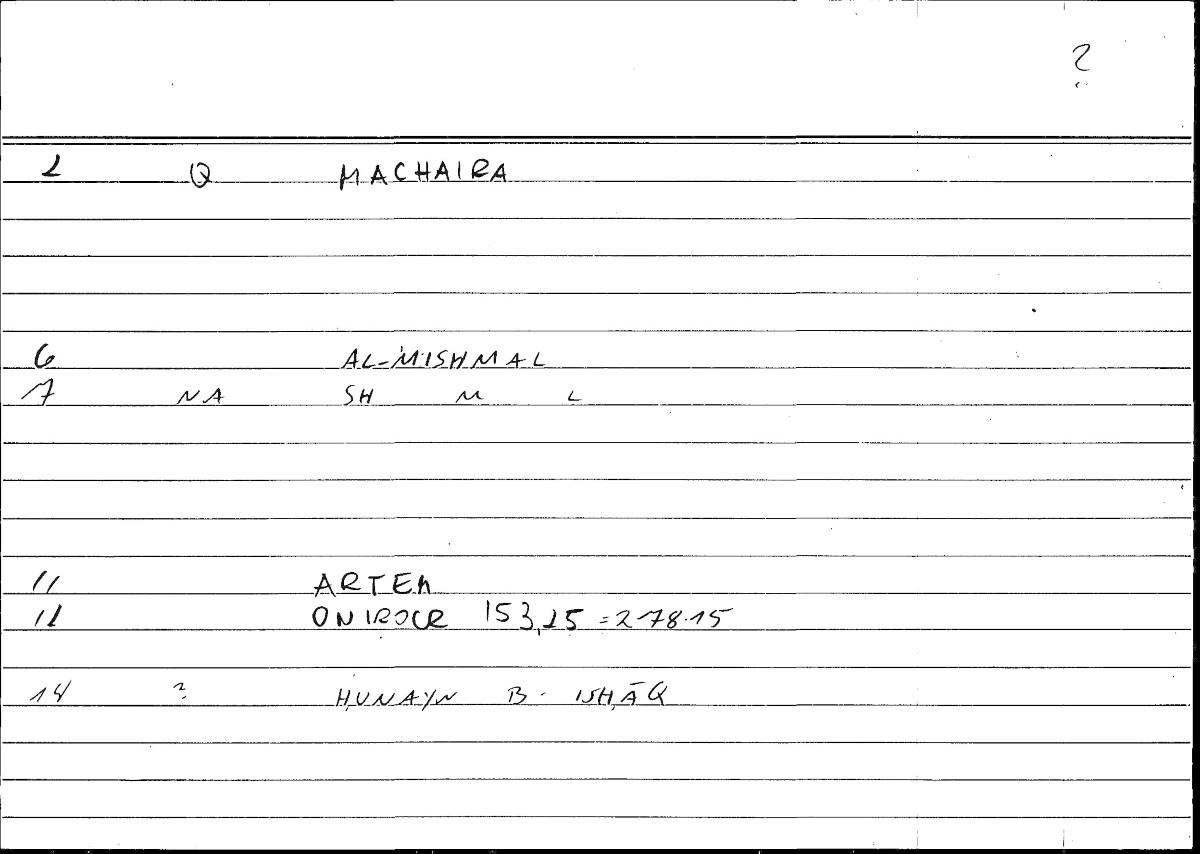 ?
2 Q MACHAIRA
6 AL-MISHMAL
7 NA SH M L
11 ARTEM
12 ONIROCR 153,25 = 278.15
14 ? ḤUNAYN B. ISḤĀQ